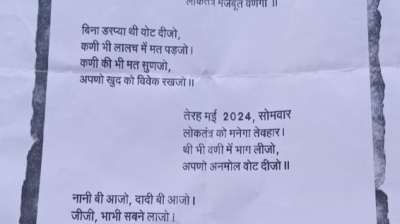 लोकतंत्र मजबूत वणेगा ॥
बिना डरप्या थी वोट दीजो,
कणी भी लालच में मत पड़जो।
कणी की भी मत सुणजो,
अपणो खुद को विवेक रखजो ॥
तेरह मई 2024, सोमवार
लोकतंत्र को मनेगा तेवहार।
थी भी वणी में भाग लीजो,
अपणो अनमोल वोट दीजो ॥
नानी बी आजो, दादी बी आजो।
जीजी, भाभी सबने लाजो।